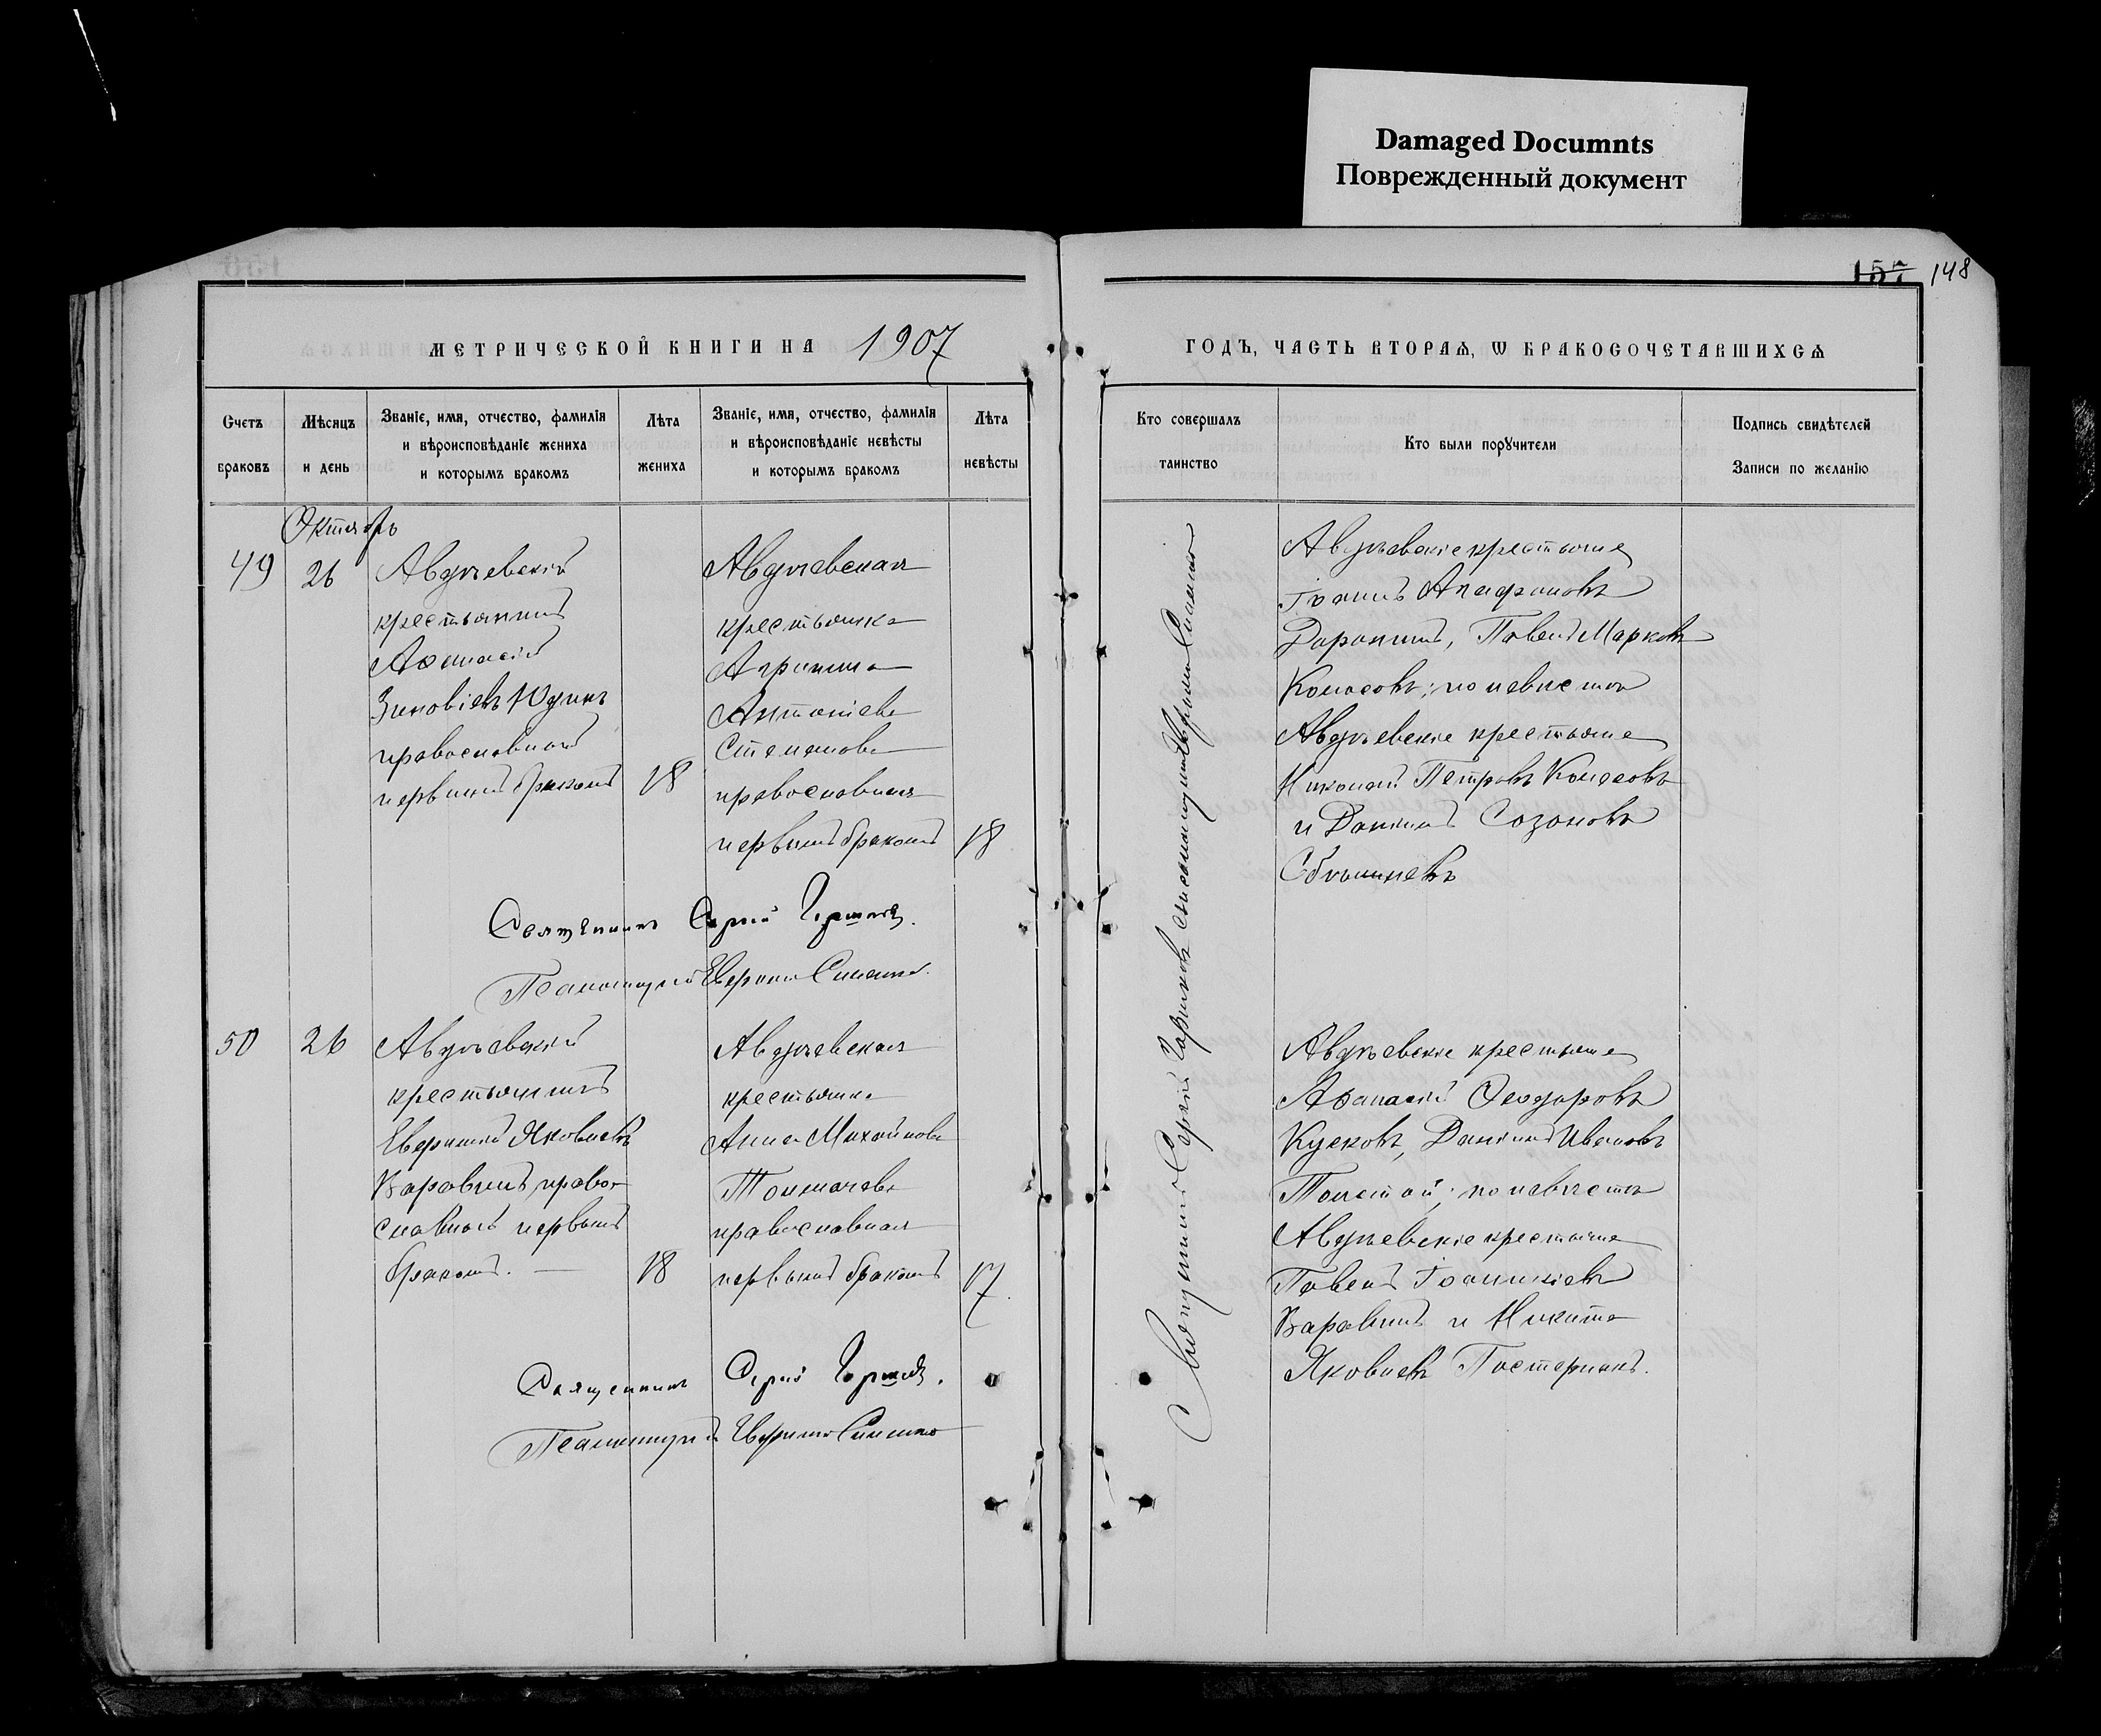 Damaged Documnts
Поврежденный документ
157 148
МЕТРИЧЕСКОЙ КНИГИ НА 1907
ГОДЪ, ЧАСТЬ ВТОРАѦ, Ѡ БРАКОСОЧЕТАВШИХСѦ
Счетъ браковъ
Мѣсяцъ и день
Званіе, имя, отчество, фамилія
и вѣроисповѣданіе жениха
и которымъ бракомъ
Лѣта жениха
Званіе, имя, отчество, фамилія
и вѣроисповѣданіе невѣсты
и которымъ бракомъ
Лѣта невѣсты
Кто совершалъ таинство
Кто были поручители
Подпись свидѣтелей
Записи по желанію
Октябрь
49
26
Авдѣевскій
крестьянинъ
Аѳанасій
Зиновіевъ Юдинъ
православный
первымъ бракомъ
18
Авдѣевская
крестьянка
Агрипина
Антоніева
Степанова
православная
первымъ бракомъ
18
Священникъ Сергій
Псаломщикъ
50
26
Авдѣевскій
крестьянинъ
Евфимій Яковлевъ
Каравинъ право-
славный первымъ
бракомъ. —
18
Авдѣевская
крестьянка
Анна Михайлова
Толмачева
православная
первымъ бракомъ
17.
Священникъ Сергій
Псаломщикъ
Священникъ Сергій
Авдѣевскіе крестьяне
Іоаннъ Агафоновъ
Доронинъ, Павелъ Марковъ
Колосовъ; по невѣстѣ
Авдѣевскіе крестьяне
Николай Петровъ Колосовъ
и Даніилъ Созоновъ
Авдѣевскіе крестьяне
Аѳанасій Ѳеодоровъ
Кусковъ, Даніилъ Ивановъ
Толстой; по невѣстѣ
Авдѣевскіе крестьяне
Павелъ Іоанникіевъ
Каравинъ и Никита
Яковлевъ Постеринъ.